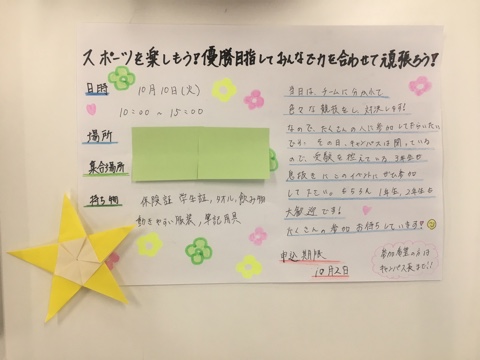 スポーツを楽しもう!優勝目指してみんなで力を合わせて頑張ろう!
日時
10月10日(火)
10:00 ~ 15:00
場所
集合場所
持ち物
保険証 学生証,タオル,飲み物
動きやすい服装,筆記用具
当日は、チームに分かれて
色々な競技をし、対決します!
なので、たくさんの人に参加してもらいたい
です。その日、キャンパスは閉っている
ので、受験を控えている3年生が
息抜きにこのイベントにぜひ参加
してほしい。もちろん1年生、2年生も
大歓迎です!
たくさんの参加お待ちしています!!
申込期限
10月2日
参加希望の方は
キャンパス長まで!!